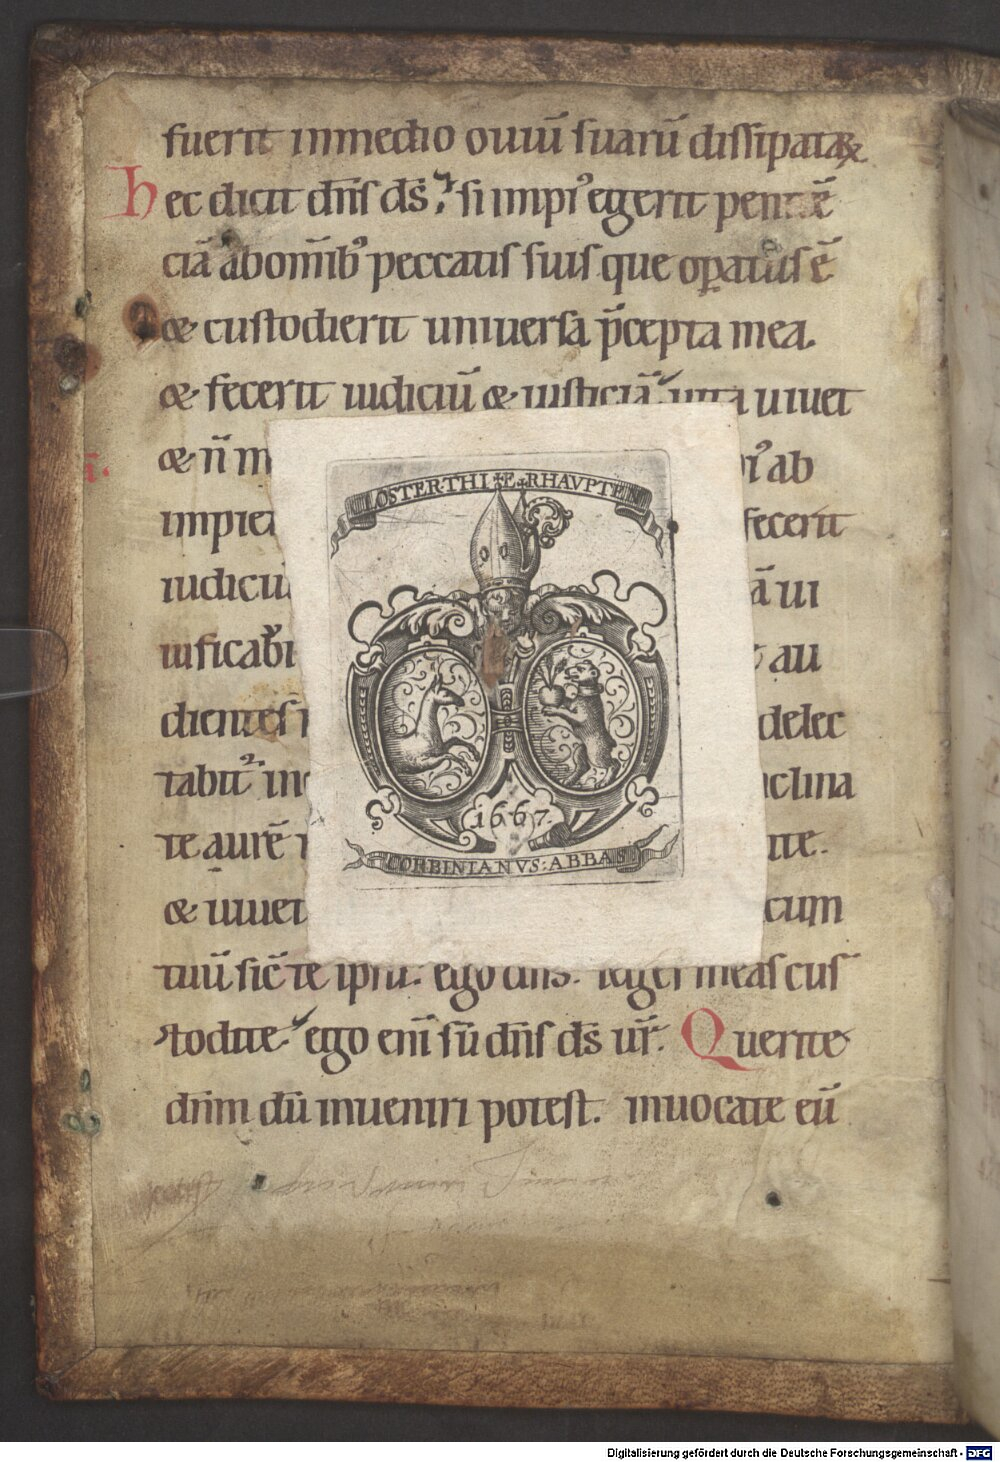 fuerit inmedio ouiū suarū dissipataꝝ
hec dicit dn̄s ds̄. si impiꝰ egerit penitē
ciā abomīb; peccatis suis que oꝑatus ē
& custodierit uniuersa p̄cepta mea.
& fecerit iudiciū & iusticiā uita uiuet
& n̄ m ab
impiet fecerit
iudiciū ā ui
uificab au
dientes delec
tabit᷑ in inclina
te aurē te.
& uiuet cum
tuū sic̄ te ipsū. ego dn̄s. leges meas cus
todite ego eni̅ sū dn̄s ds̄ ur̄. Querite
dn̄m dū inueniri potest. inuocate eū
KLOSTER THIERHAVPTEN
1667.
CORBINIANVS: ABBAS
Digitalisierung gefördert durch die Deutsche Forschungsgemeinschaft - DFG